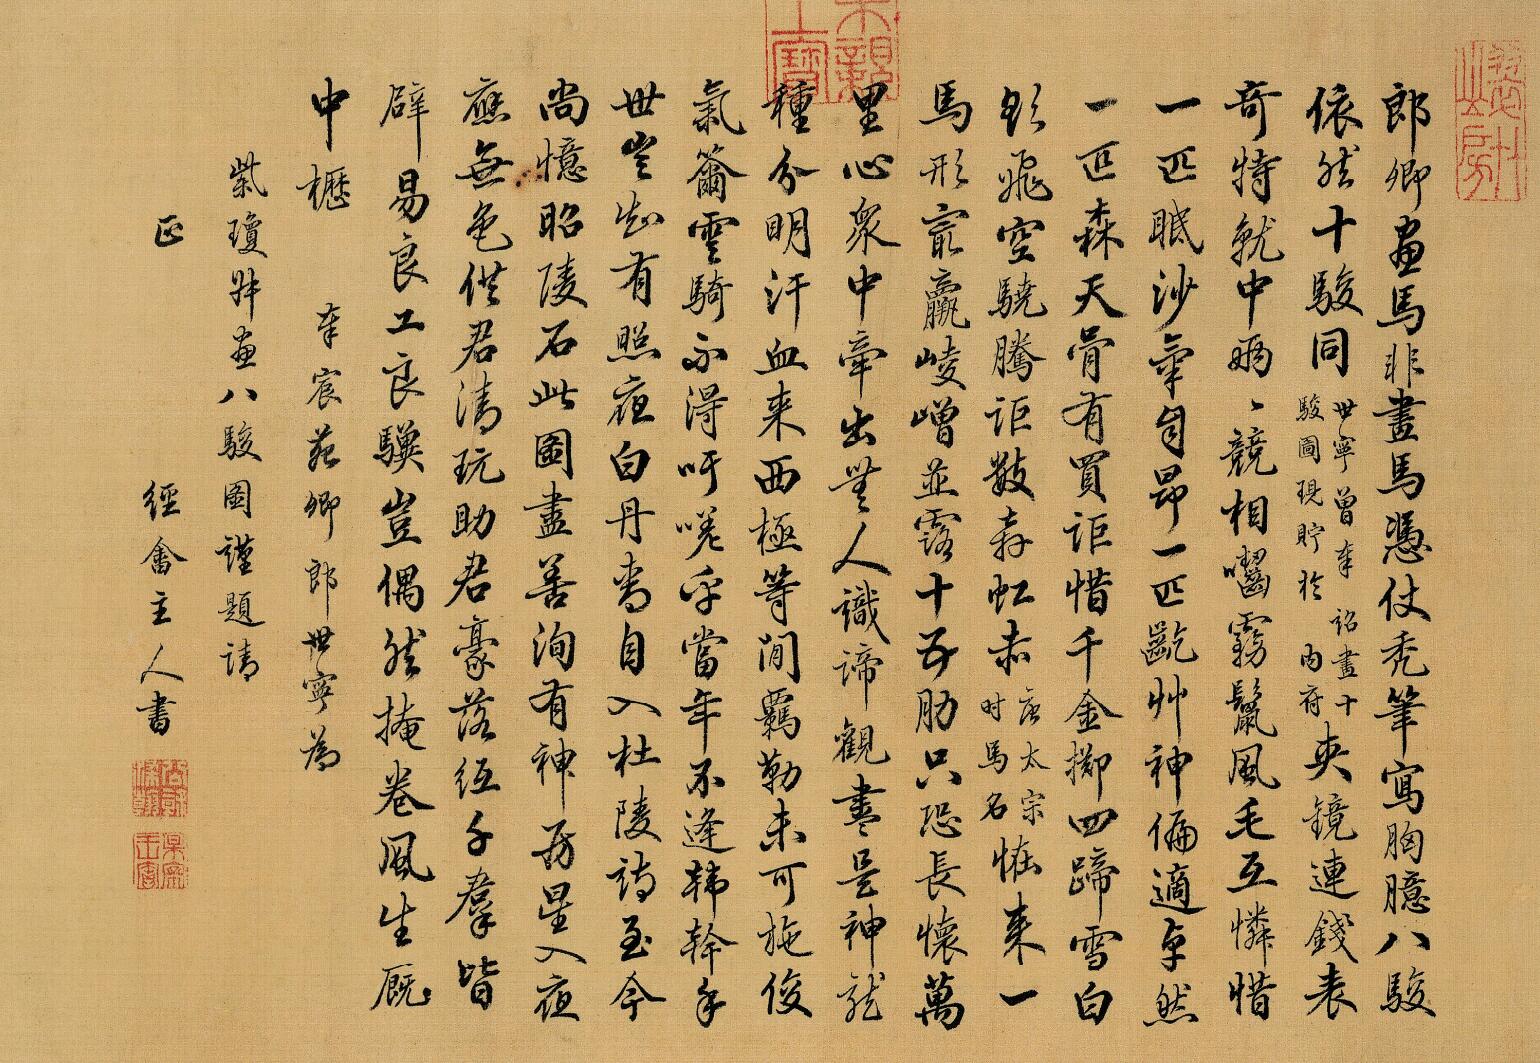 郎卿畫馬非畫馬憑仗禿筆寫胸臆八駿
依然十駿同
世寧曾奉 詔畫十
駿圖現貯於 內府
夾鏡連錢表
奇特就中兩兩競相囓霧鬣風毛互憐惜
一匹眠沙氣自昂一匹齕艸神偏適卓然
一匹森天骨有買詎惜千金擲四蹄雪白
欲飛空驍騰詎數奔虹赤
唐太宗
时馬名
恠来一
馬形最羸崚嶒並露十五肋只恐長懷萬
里心衆中牽出無人識諦觀盡是神龍
種分明汗血来西極等閒羈勒未可施俊
氣籋雲騎不得吁嗟乎當年不逢韓幹手
世豈知有照夜白丹青自入杜陵詩至今
尚憶昭陵石此圖盡善洵有神房星入夜
應無色供君清玩助君豪落紙千羣皆
辟易良工良驥豈偶然掩卷風生厩
中櫪
奉宸苑卿郎世寧為
紫瓊叔畫八駿圖謹題請
正
經畬主人書